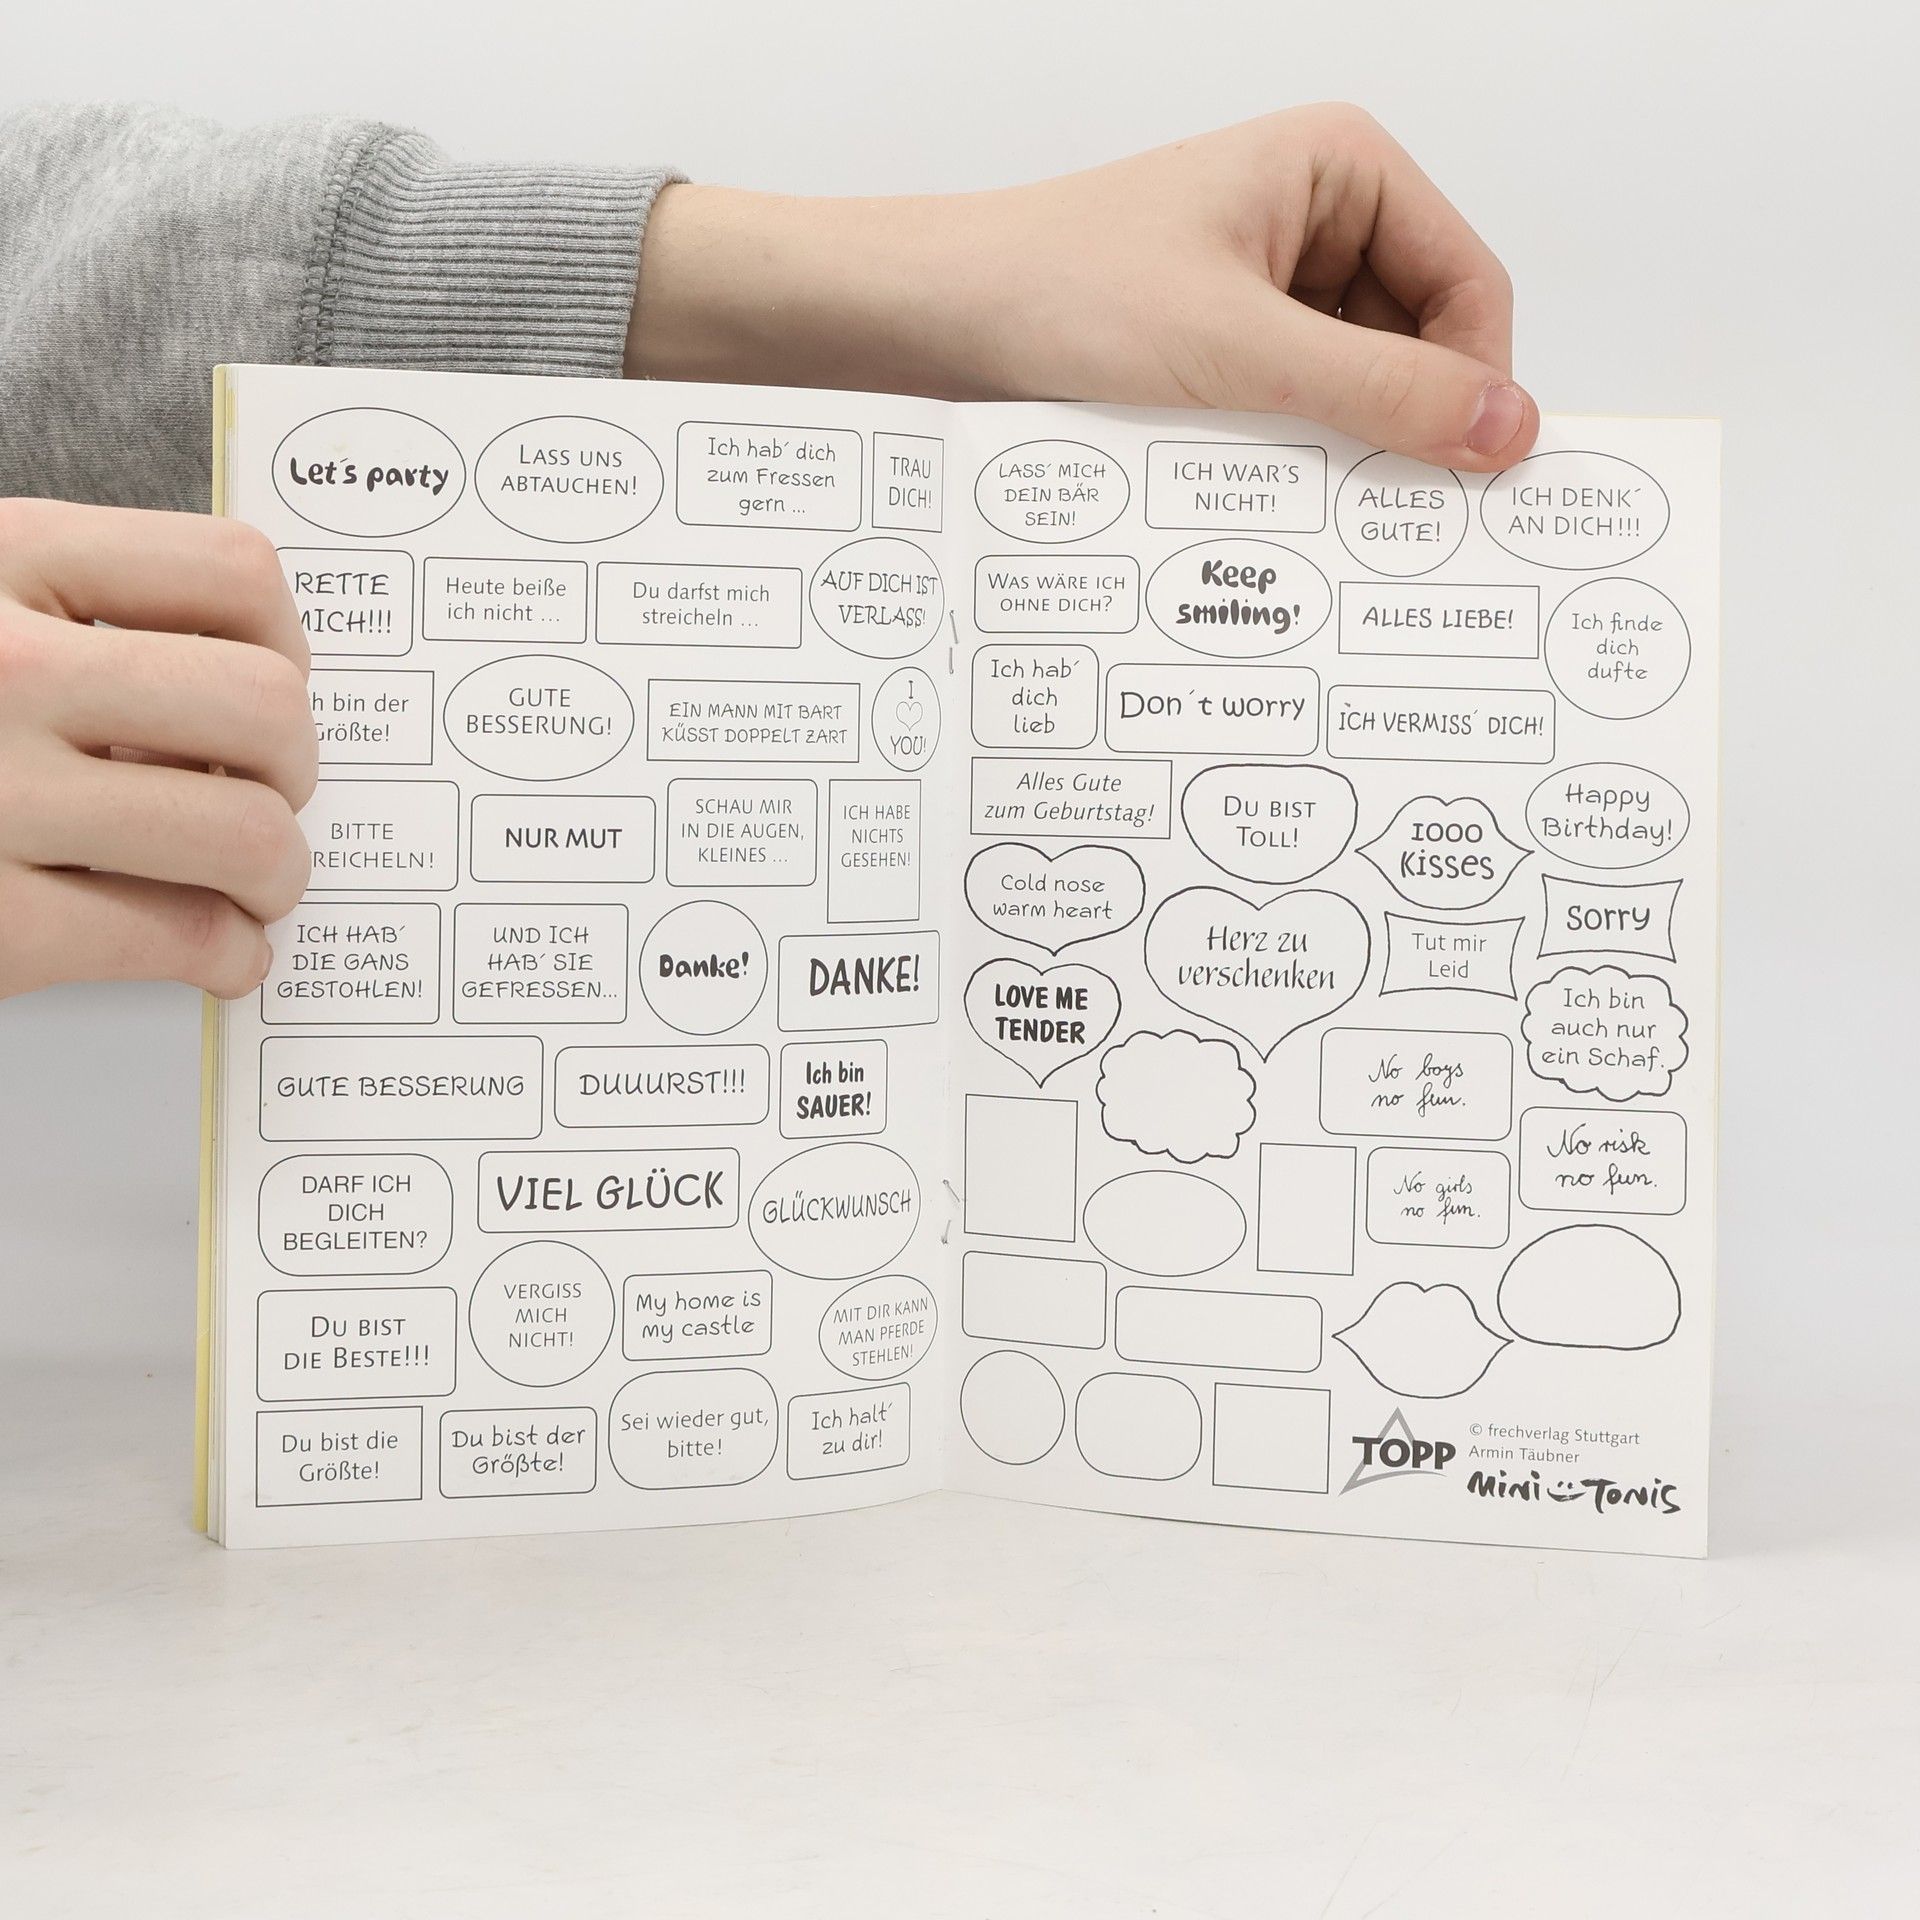 Let´s party
LASS UNS
ABTAUCHEN!
Ich hab´ dich
zum Fressen
gern ...
TRAU
DICH!
RETTE
MICH!!!
Heute beiße
ich nicht ...
Du darfst mich
streicheln ...
AUF DICH IST
VERLASS!
bin der
Größte!
GUTE
BESSERUNG!
EIN MANN MIT BART
KÜSST DOPPELT ZART
I
♡
YOU!
BITTE
NUR MUT
SCHAU MIR
IN DIE AUGEN,
KLEINES ...
ICH HABE
NICHTS
GESEHEN!
ICH HAB´
DIE GANS
GESTOHLEN!
UND ICH
HAB´ SIE
GEFRESSEN...
Danke!
DANKE!
GUTE BESSERUNG
DUUURST!!!
Ich bin
SAUER!
DARF ICH
DICH
BEGLEITEN?
VIEL GLÜCK
GLÜCKWUNSCH
DU BIST
DIE BESTE!!!
VERGISS
MICH
NICHT!
My home is
my castle
MIT DIR KANN
MAN PFERDE
STEHLEN!
Du bist die
Größte!
Du bist der
Größte!
Sei wieder gut,
bitte!
Ich halt´
zu dir!
LASS´ MICH
DEIN BÄR
SEIN!
ICH WAR´S
NICHT!
ALLES
GUTE!
ICH DENK´
AN DICH!!!
WAS WÄRE ICH
OHNE DICH?
Keep
smiling!
ALLES LIEBE!
Ich finde
dich
dufte
Ich hab´
dich
lieb
Don´t worry
ICH VERMISS´ DICH!
Alles Gute
zum Geburtstag!
DU BIST
TOLL!
1000
Kisses
Happy
Birthday!
Cold nose
warm heart
Herz zu
verschenken
Tut mir
Leid
sorry
LOVE ME
TENDER
Ich bin
auch nur
ein Schaf.
No boys
no fun.
No risk
no fun.
No girls
no fun.
TOPP
© frechverlag Stuttgart
Armin Täubner
Mini Tonis